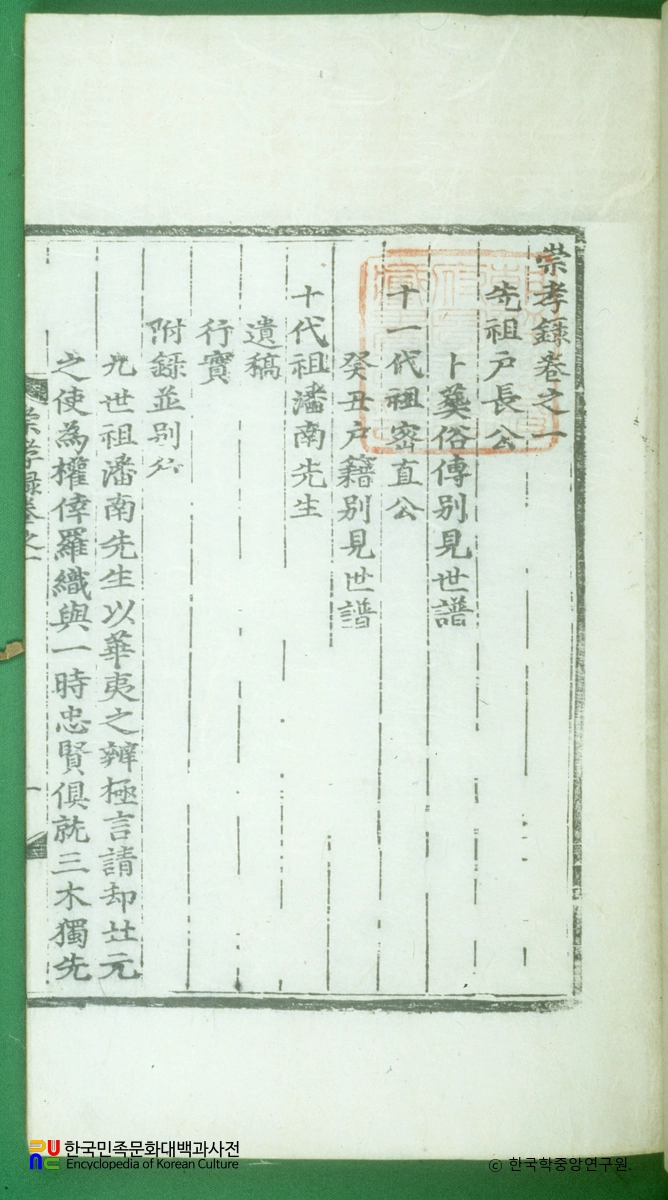 崇孝錄卷之一
先祖戶長公
卜葬俗傳別見世譜
十一代祖密直公
癸丑戶籍別見世譜
十代祖潘南先生
遺稿
行實
附錄並別行
九世祖潘南先生以華夷之辨極言請却北元
之使為權倖羅織與一時忠賢俱就三木獨先
崇孝錄卷之一
一
한국민족문화대백과사전
Encyclopedia of Korean Culture
© 한국학중앙연구원.